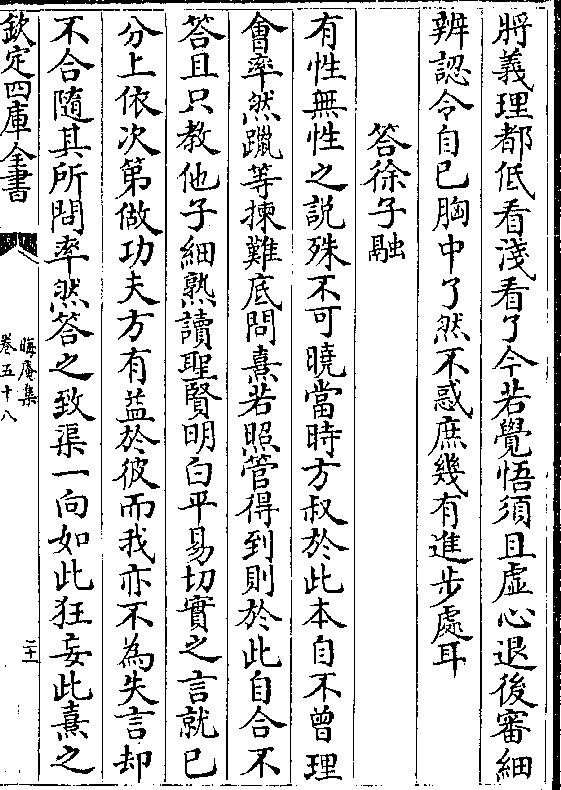 將義理都低看淺看了今若覺悟須且虚心退後審細
辨認令自已胸中了然不惑庶幾有進步處耳
答徐子融
有性無性之説殊不可曉當時方叔於此本自不曾理
會率然躐等揀難底問熹若照管得到則於此自合不
答且只教他子細熟讀聖賢明白平易切實之言就已
分上依次第做功夫方有益於彼而我亦不為失言却
不合隨其所問率然答之致渠一向如此狂妄此熹之
欽定四庫全書
晦庵集
卷五十八
二十